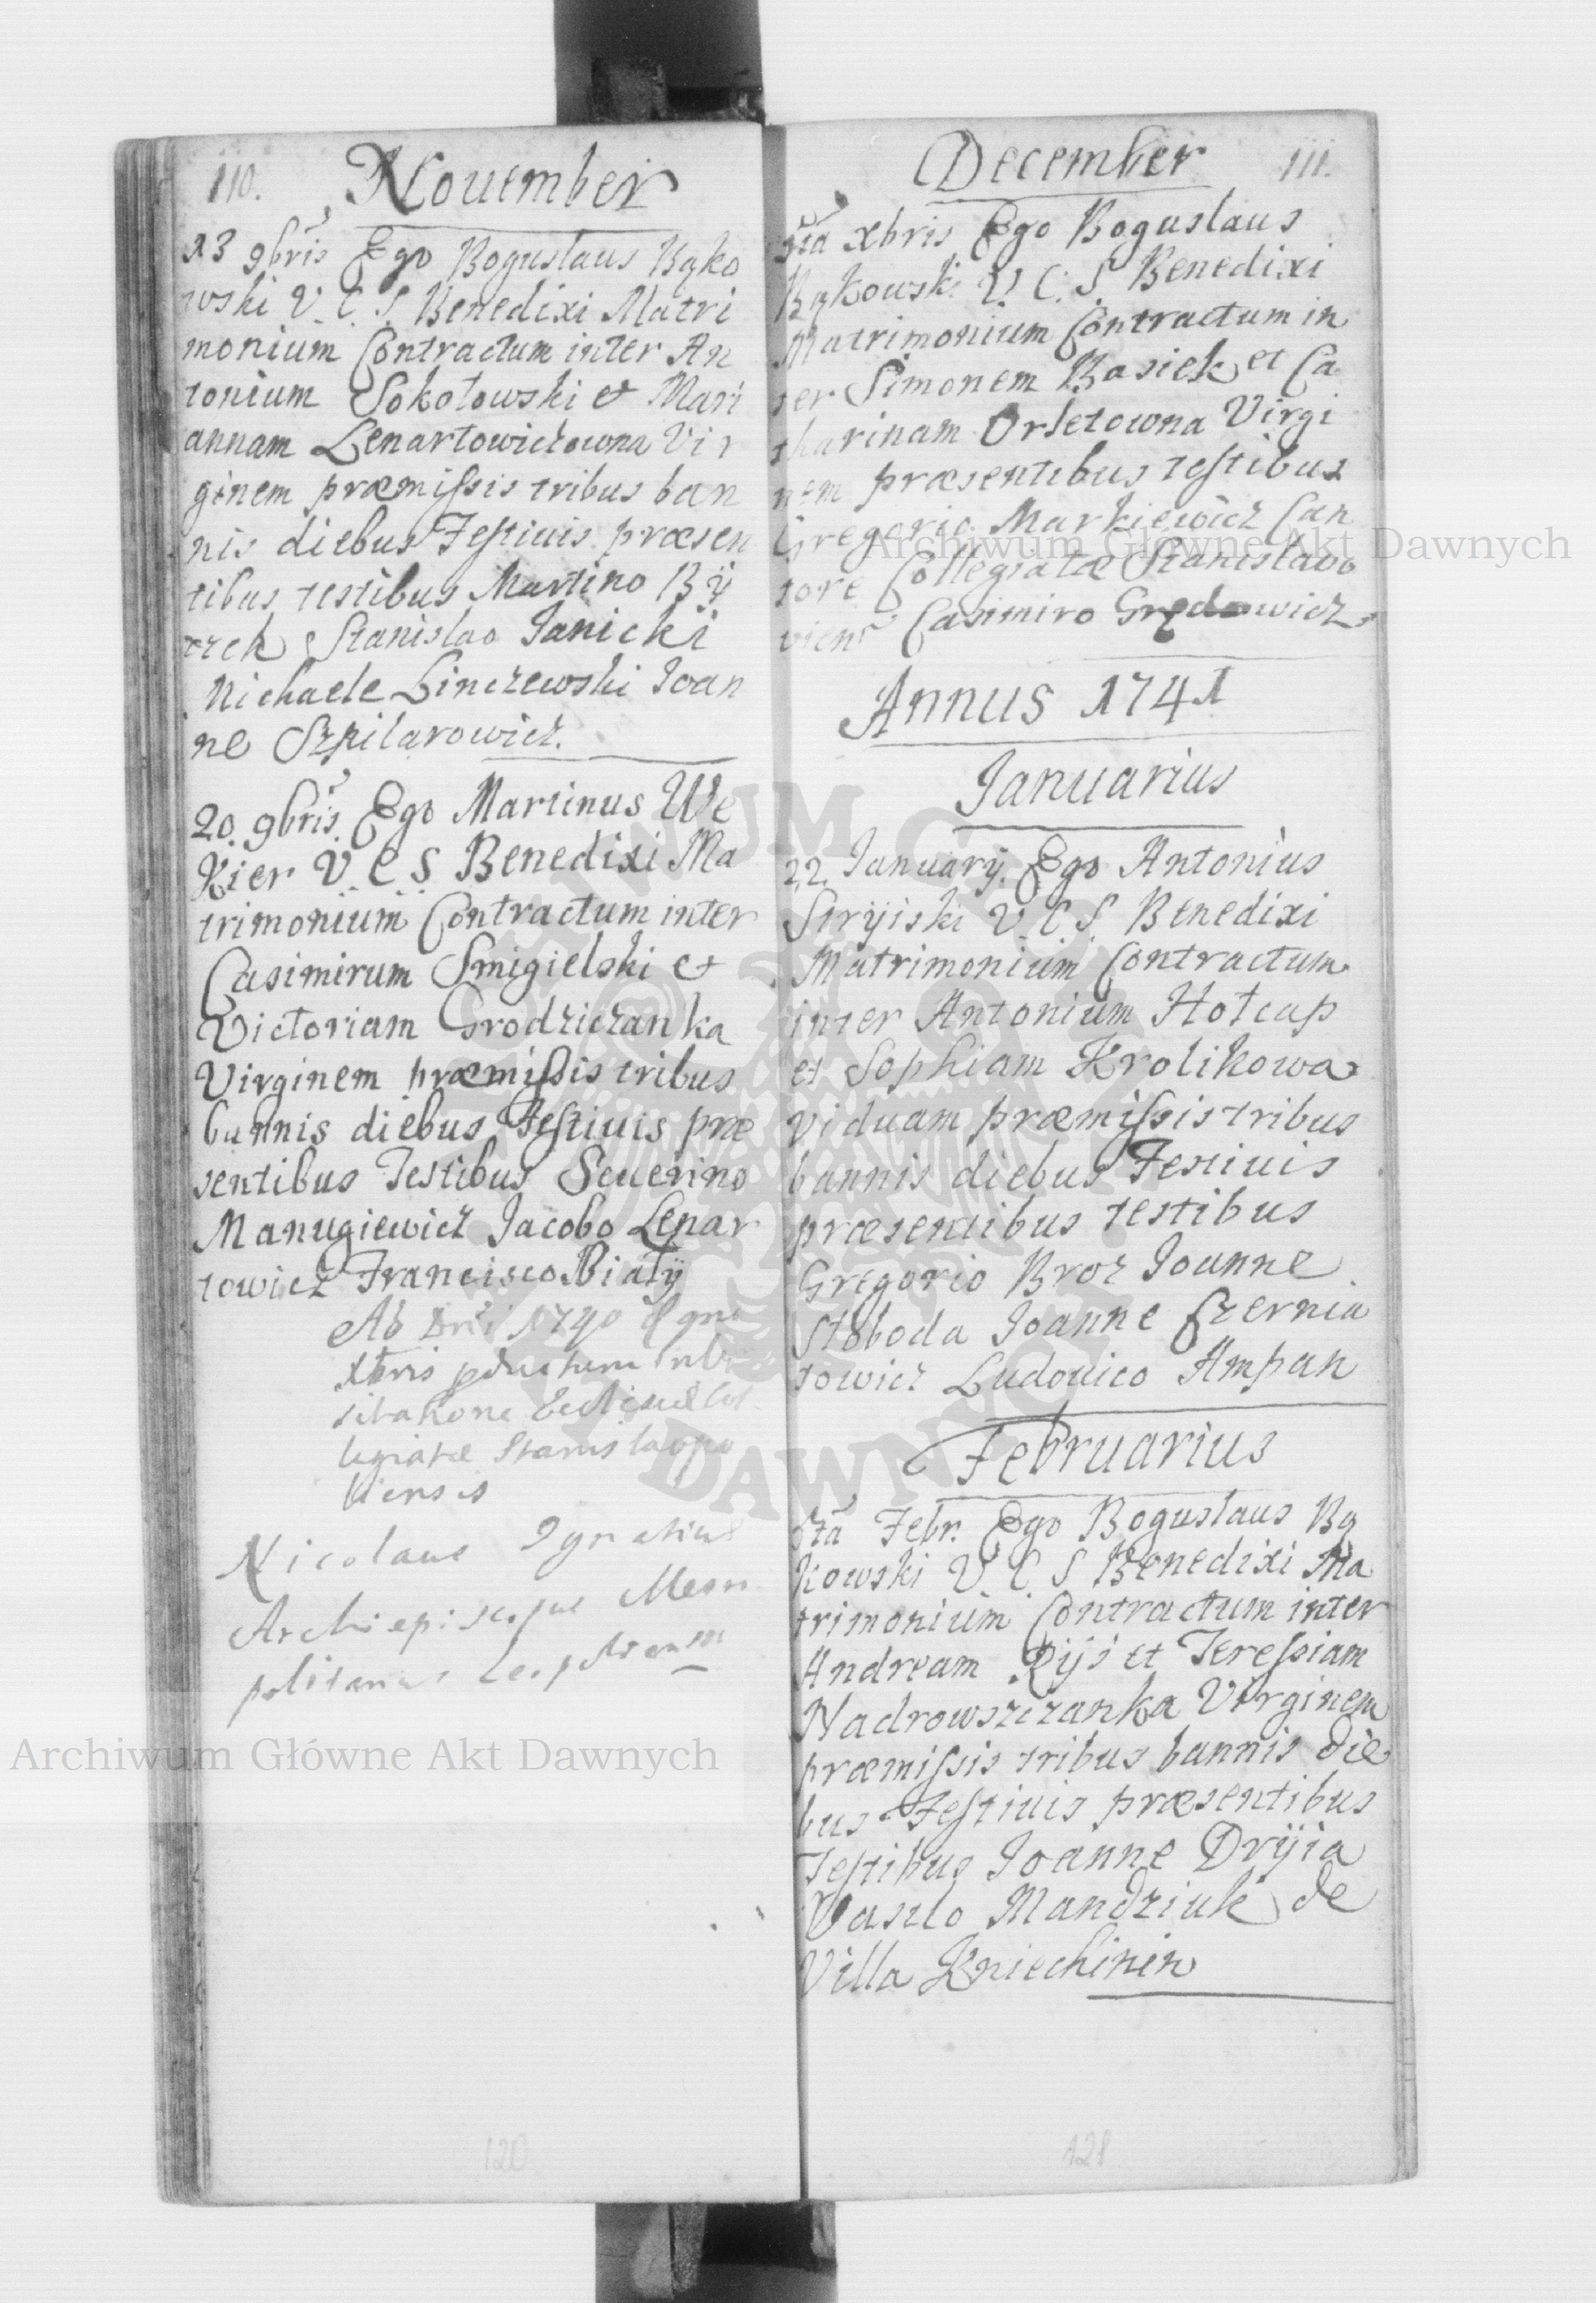 110.
November
13 9bris Ego Boguslaus Bąko
wski V. C. S. Benedixi Matri
monium Contractum inter An
tonium Sokołowski et Mari
annam Lenartowiczowna Vir
ginem præmissis tribus ban
nis diebus Festiuis præsen
tibus testibus Martino Bÿ
czek Stanislao Janicki
Michaele Linczewski Joan
ne Szpilarowicz.
20. 9bris Ego Martinus We
kier V. C. S. Benedixi Ma
trimonium Contractum inter
Casimirum Smigielski et
Victoriam Grodziczanka
Virginem præmissis tribus
bannis diebus Festiuis præ
sentibus Testibus Seuerino
Manugiewicz Jacobo Lenar
towicz Francisco Białÿ
1740
Xbris
legiatæ Stanislaopo
liensis
Nicolaus Ignatius
Archiepiscopus Metro
politanus
120
December
111.
Xbris Ego Boguslaus
Bąkowski V. C. S Benedixi
Matrimonium Contractum in
ter Simonem Basiek et Ca
tharinam Orletowna Virgi
nem præsentibus testibus
Gregorio Markiewicz Can
tore Collegiatæ Stanislavo
Casimiro
Annus 1741
Januarius
22. Januarÿ. Ego Antonius
Strÿiski V. C. S. Benedixi
Matrimonium Contractum
inter Antonium Hołcap
et Sophiam Krolikowa
viduam præmissis tribus
bannis diebus Festiuis
præsentibus testibus
Gregorio Broz Joanne
Słoboda Joanne Czernia
towicz Ludouico Ampan
Februarius
Febr. Ego Boguslaus Bą
kowski V. C. S Benedixi Ma
trimonium Contractum inter
Andream Rÿs et Teressiam
Nadrowszczanka Virginem
præmissis tribus bannis die
bus Festiuis præsentibus
Testibus Joanne Drÿia
Vasilo Mandziuk de
Villa Kniechinin
121
Archiwum Główne Akt Dawnych
Archiwum Główne Akt Dawnych